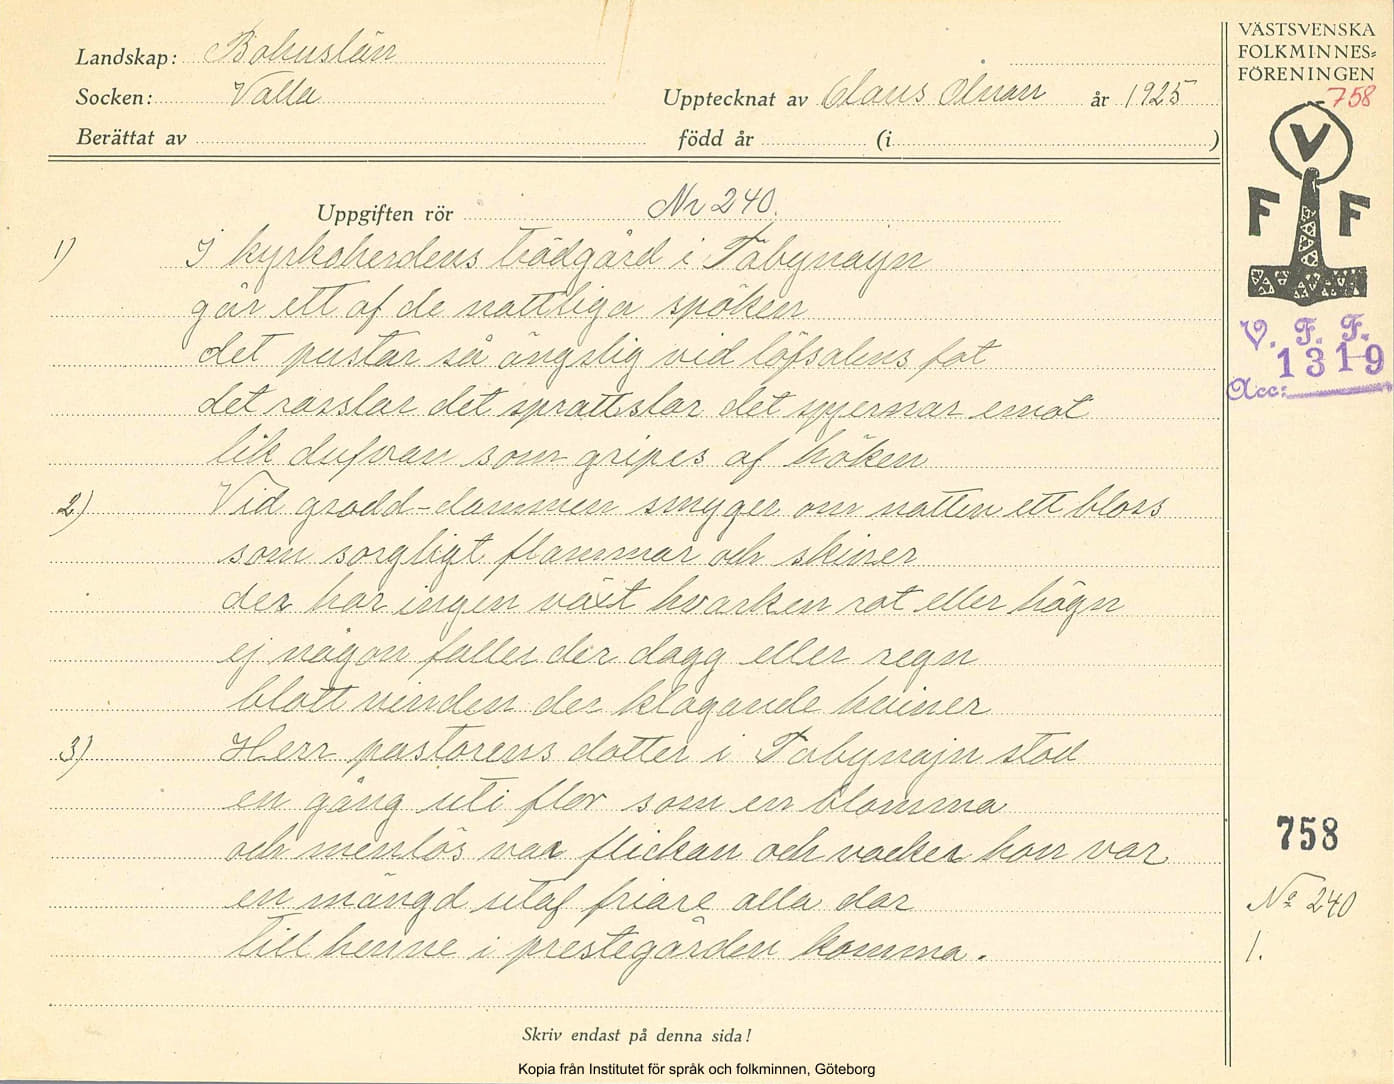 Landskap: Bohuslän
Socken: Valla
Upptecknat av Claus Olsson år 1925
Berättat av
född år (i )
VÄSTSVENSKA
FOLKMINNES=
FÖRENINGEN
758
V
F F
V. F. F.
1319
Acc:
Uppgiften rör Nr 240.
1) I kyrkoherdens trädgård i Tabynayn
går ett af de nattliga spöken
det pustar så ängslig vid löfsalens fot
det rasslar det sprattslar det spjernar emot
lik dufvan som gripes af höken
2) Vid grodd-dammen smyger om natten ett bloss
som sorgligt flammar och skiner
der har ingen växt hvarken rot eller hägn
ej någon faller der dagg eller regn
blott vinden der klagande hviner
3) Herr pastorens dotter i Tabynajn stod
en gång uti flor som en blomma
och menlös var flickan och vacker hon var
en mängd utaf friare alla dar
till henne i prestegården komma.
758
No 240
1.
Skriv endast på denna sida!
Kopia från Institutet för språk och folkminnen, Göteborg